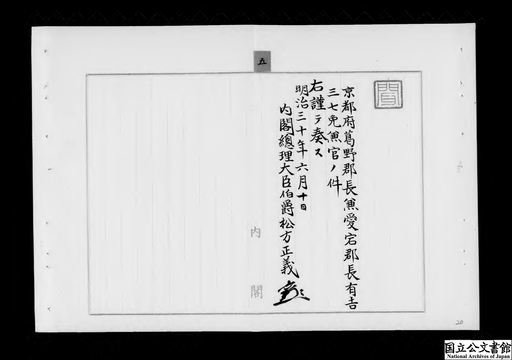 京都府葛野郡長兼愛宕郡長有吉
三七免兼官ノ件
右謹テ奏ス
明治三十年六月十日
内閣總理大臣伯爵松方正義
五
内閣
20
国立公文書館
National Archives of Japan